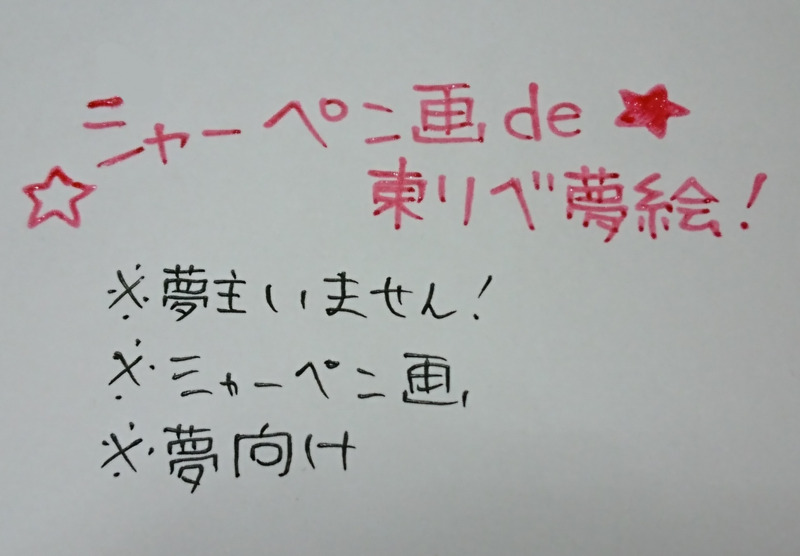 ニャーペン画de★
☆東リベ夢絵!
※夢主いません!
※ミャーペン画
※夢向け